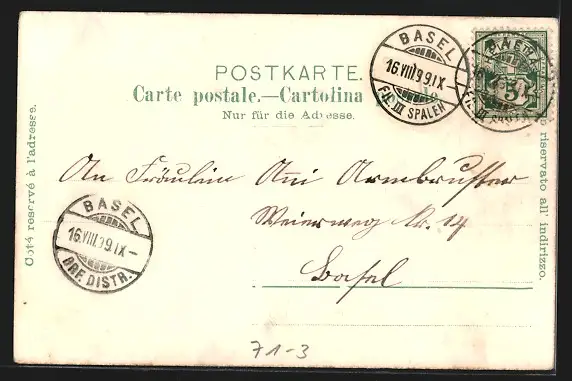 POSTKARTE.
Carte postale.—Cartolina postale
Nur für die Adresse.
BASEL
16.VIII.99.IX
FIL. III SPALEN
5
An Fräulein Ani Armbruster
Weierweg Nr. 14
Basel
BASEL
16.VIII.99.IX–
BRF. DISTR.
Coté reservé à l'adresse.
riservato all' indirizzo.
71-3